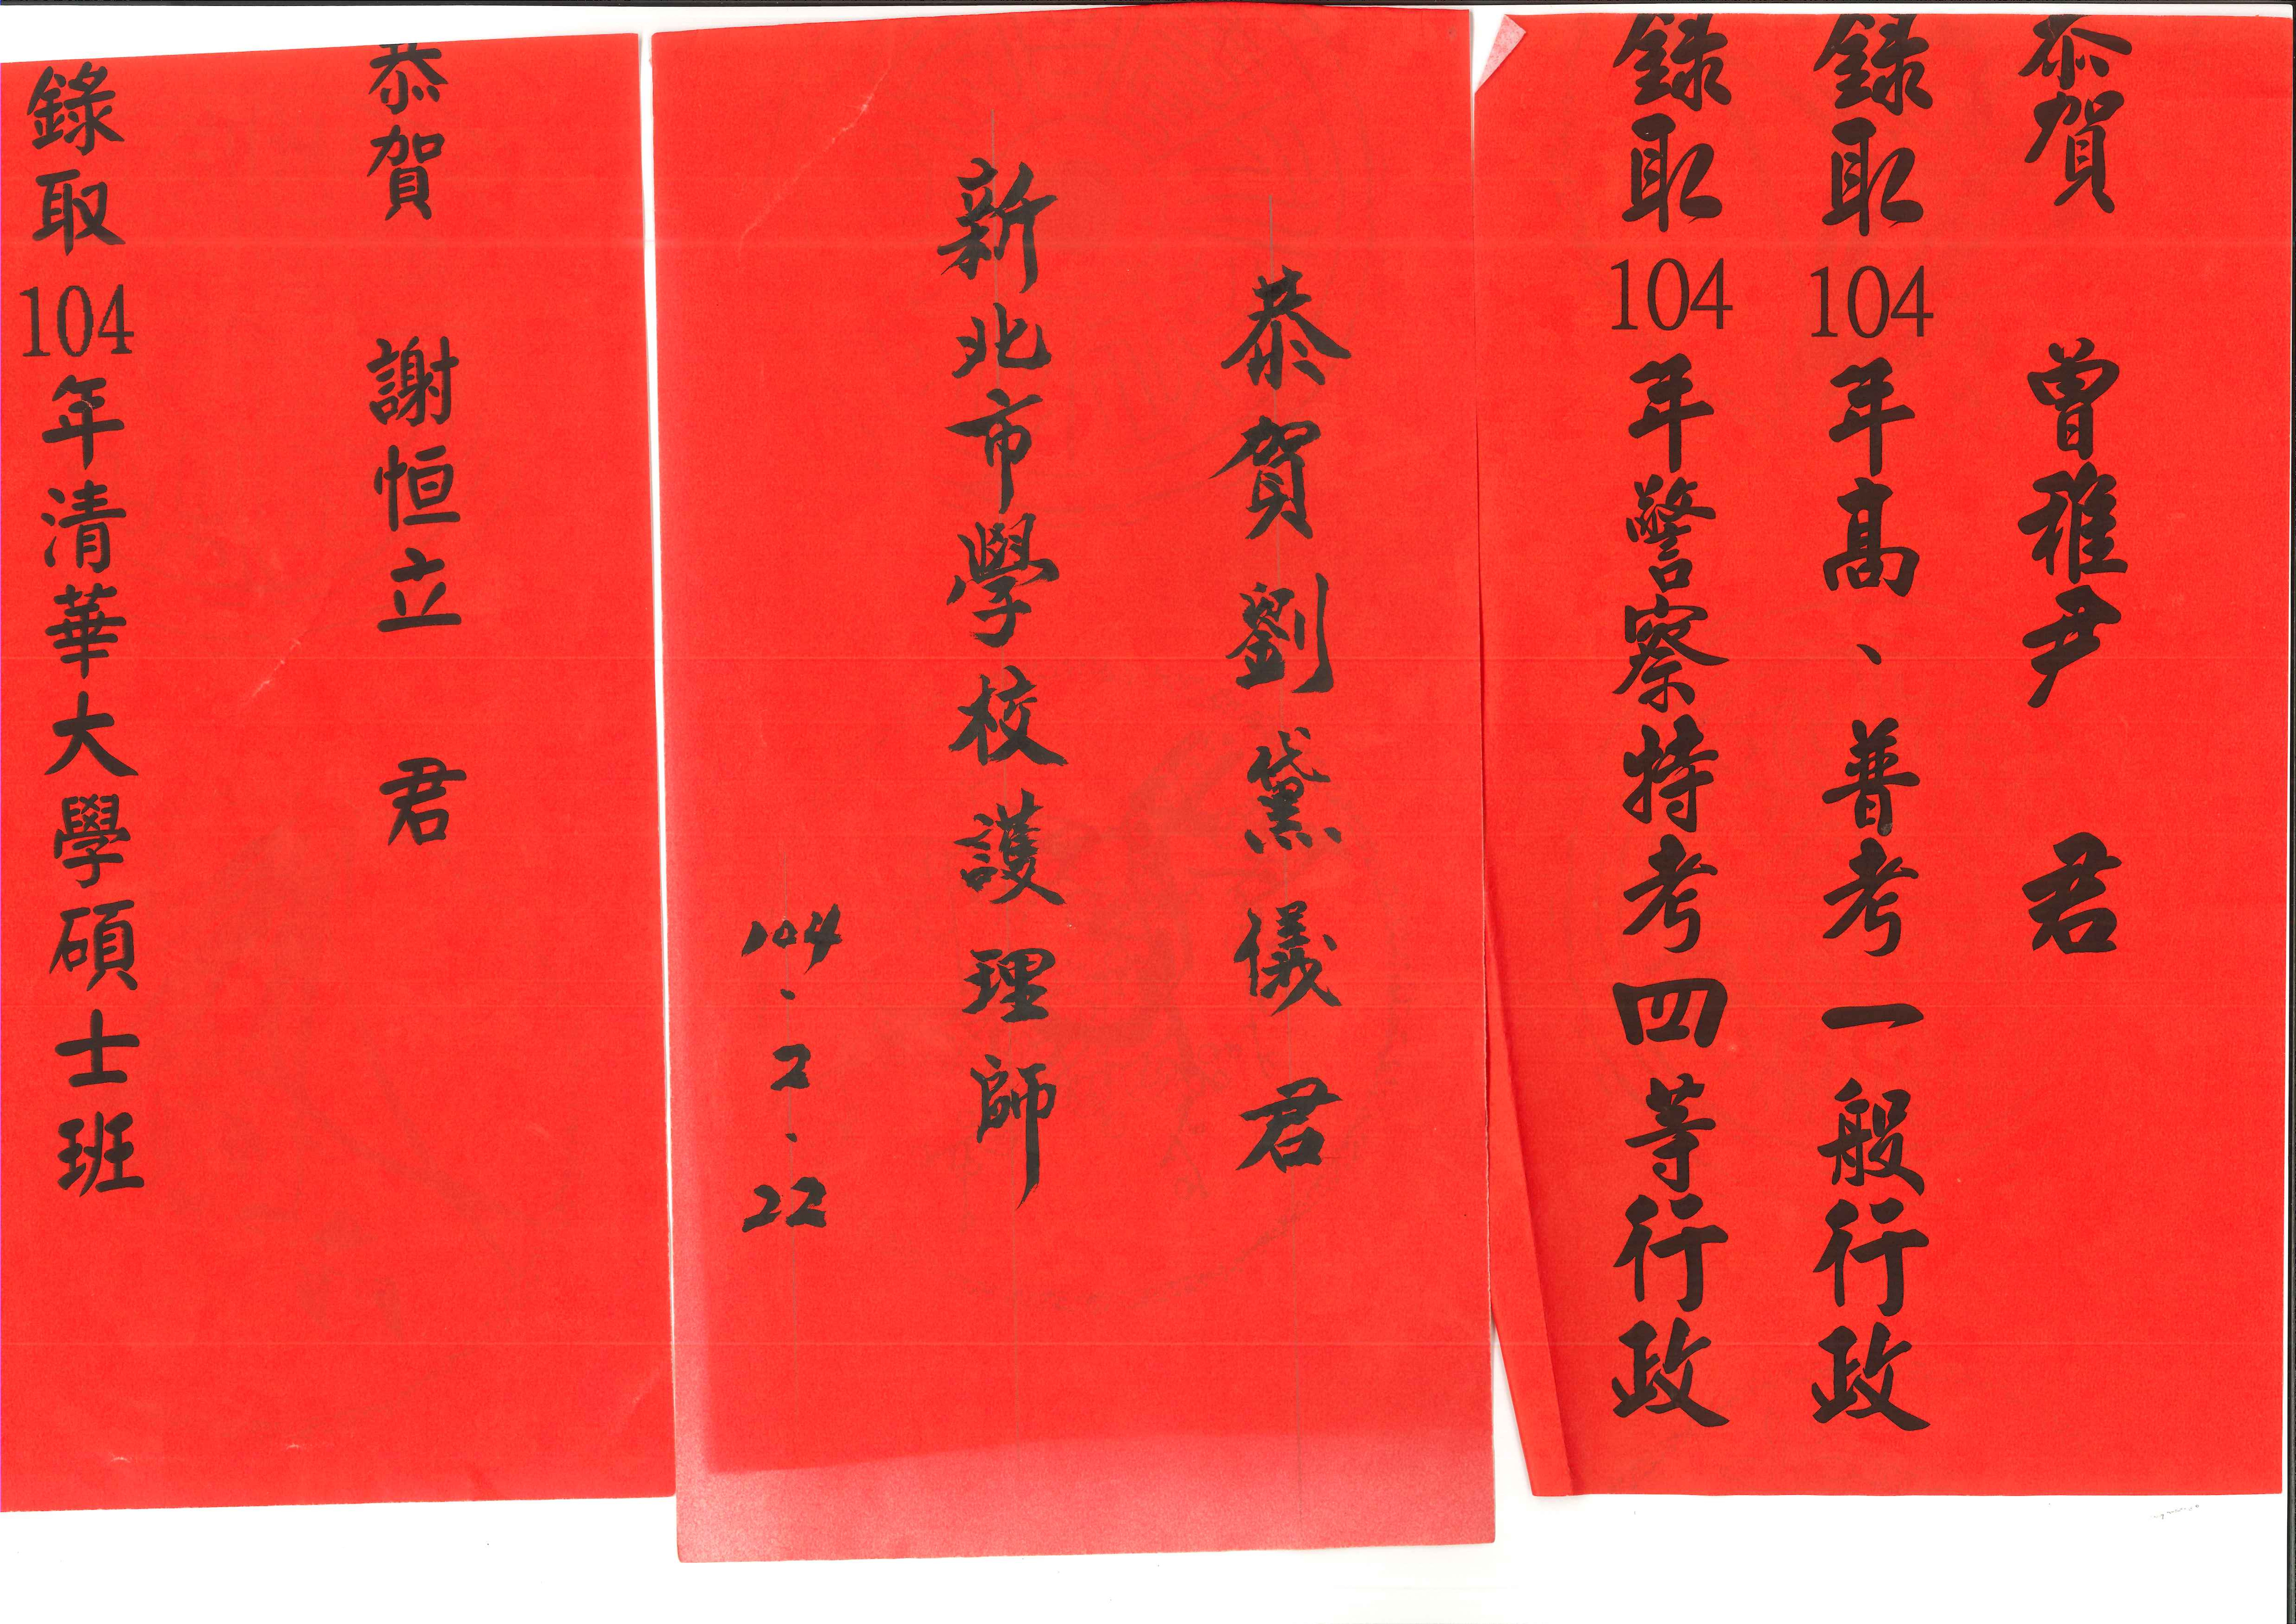 恭賀 曾稚尹 君
錄取104年高、普考一般行政
錄取104年警察特考四等行政
恭賀劉黛儀君
新北市學校護理師
104.2.22
恭賀 謝恒立 君
錄取104年清華大學碩士班